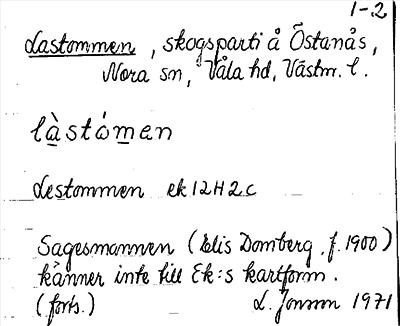 1-2
Lastommen, skogsparti å Östanås,
Nora sn, Våla hd, Västm. l.
làstómen
Lestommen ek 12H2c
Sagesmannen (Elis Domberg, f. 1900)
känner inte till Ek:s kartform.
(forts.) L. Jonson 1971